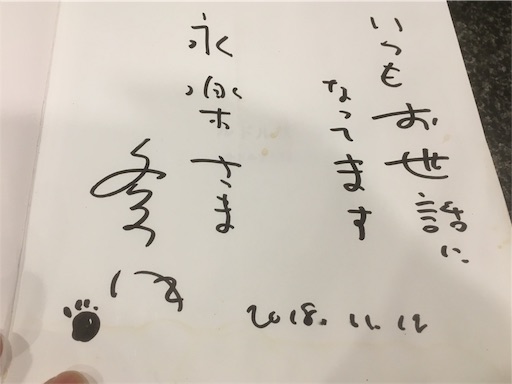 いつもお世話に
なってます
永楽さま
2018.11.12